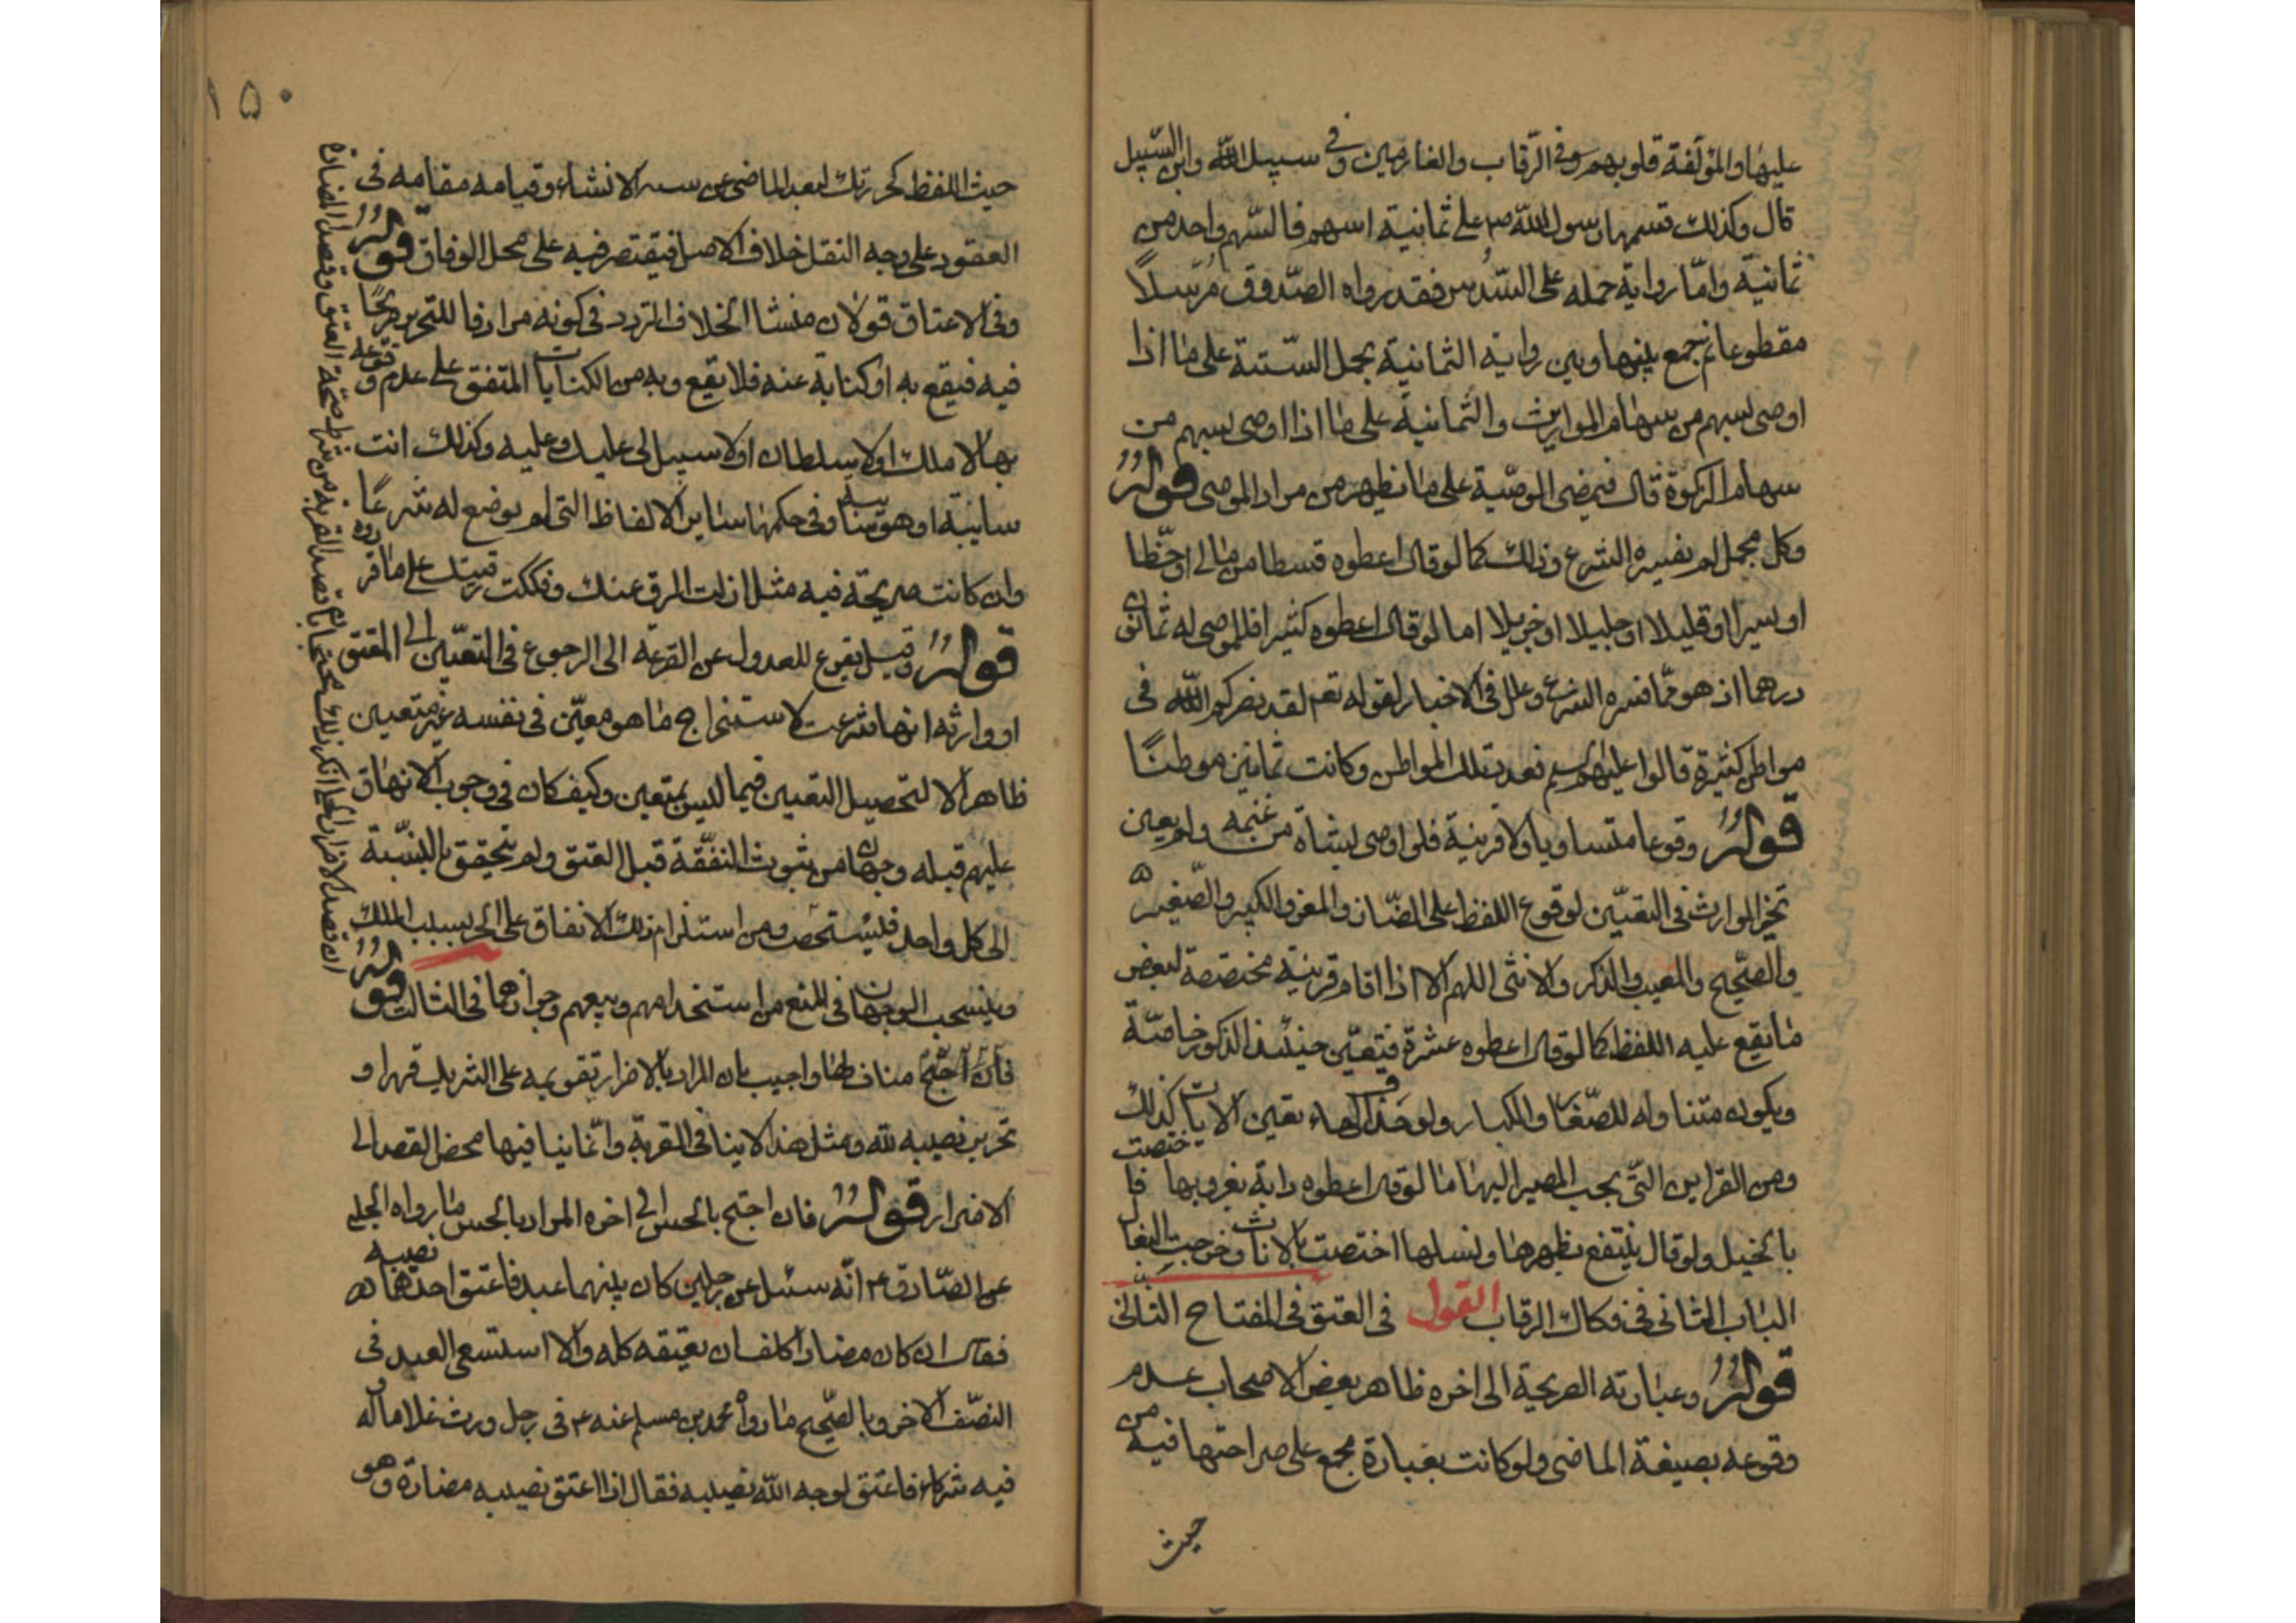 عليها والمؤلفة قلوبهم وفي الرّقاب والغارمين وفي سبيل الله وابن السّبيل
قال وكذلك قسمها رسول الله ص على ثمانية اسهم فالسّهم واحد من
ثمانية وامّا رواية حمله على السّدس فقد رواه الصّدوق مرسلاً
مقطوعا ثم جمع بينها وبين رواية الثمانية بحمل السّتة على ما اذا
اوصى بسهم من سهام المواريث والثمانية على ما اذا اوصى بسهم من
سهام الزكوة قال فيمضى الوصّية على ما يظهر من مراد الموصى قوله
وكل مجمل لم يفسره الشرع وذلك كما لو قال اعطوه قسطا من مالى او حظّا
او يسيرا او قليلا او جليلا او جزيلا اما لو قال اعطوه كثيرا فللموصى له ثمانون
درهما اذ هو ممّا فسره الشرع وعلل فى الاخبار لقوله تعه لقد نصركم الله فى
مواطن كثيرة قالوا عليهم السلم فعدت تلك المواطن وكانت ثمانين موطنًا
قوله وقوعا متساويا ولا قرينة فلو اوصى بشاة من غنمه ولم يعين
تخير الوارث فى التعيّين لوقوع اللفظ على الضّان والمعز والكبير والصّغيرة
والصّحيح والمعيب والذكر والانثى اللهم الا اذا اقام قرينة مخصصة لبعض
ما يقع عليه اللفظ كما لو قال اعطوه عشرة فيتعيّن حينئذ الذكور خاصّة
ويكون متناوله للصّغار والكبار ولو حذف الهاء تعين الاناث كذلك
ومن القراين التّى يجب المصير اليها ما لو قال اعطوه دابة يغزو بها فاختصت
بالخيل ولو قال ينتفع بظهرها ونسلها اختصت بالاناث وخرجت البغال
الباب الثانى فى فكاك الرقاب القول فى العتق فى المفتاح الثانى
قوله وعبارته الصريحة الى اخره ظاهر بعض الاصحاب عدم
وقوعه بصيغة الماضى ولو كانت بعبارة مجمع على صراحتها فيه من
حيث
١٥٠
حيث اللفظ كحررتك لبعد الماضى عن الانشاء وقيامه مقامه فى
العقود على وجه النقل خلاف الاصل فيقتصر فيه على محل الوفاق قوله
وفى الاعتاق قولان منشا الخلاف التردد فى كونه مرادفا للتحرير صريحًا
فيه فيقع به او كناية عنه فلا يقع وبه من الكنايات المتفق على عدم وقوعه
بها لا ملك او لا سلطان او لا سبيل لى عليك وعليه وكذلك انت
سايبة او هو سايبة وفى حكمها ساير الالفاظ التى لم يوضع له شرعًا
وان كانت صريحة فيه مثل ازلت الرق عنك وفككت رقبتك على ما قرروه
قوله وقيل يقرع للعدول عن القرعه الى الرجوع فى التعيّين الى المعتق
او وارثه انها شرعت لاستخراج ما هو معيّن فى نفسه غير متعين
ظاهرا لا لتحصيل التعيين فيما ليس بمتعين وكيف كان فى وجوب الانفاق
عليهم قبله وجهان من ثبوت النفقة قبل العتق ولم يتحقق بالنسّبة
الى كل واحد فليستصحب ومن استلزام ذلك الانفاق على الحر بسبب الملك
وينسحب الوجهان فى المنع من استخدامهم وبيعهم وجوازهما فى الثالث قوله
فان احتج مناف لها واجيب بان المراد بالاضرار تقويمه على الشريك قهرا و
تحرير نصيبه لله ومثل هذا لا ينافى القربة وانّما ينافيها محض القصد الى
الاضرار قوله فان احتج بالحسن الى اخره المراد بالحسن ما رواه الحلبى
عن الصّادق ع انّه سئل عن رجلين كان بينهما عبد فاعتق احدهما نصيبه
فقال ان كان مضارا كلف ان يعتقه كله والا استسعى العبد فى
النصّف الاخر وبالصّحيح ما رواه محمد بن مسلم عنه ع فى رجل ورث غلاما وله
فيه شركاء فاعتق لوجه الله نصيبه فقال اذا اعتق نصيبه مضارة وهو